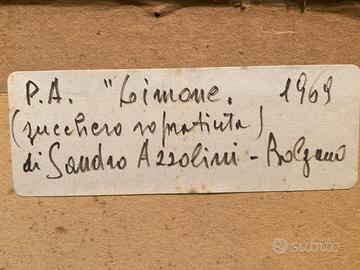 P.A. "Limone. 1969
(zucchero sopratinta)
di Sandro Azzolini - Bolzano
subito